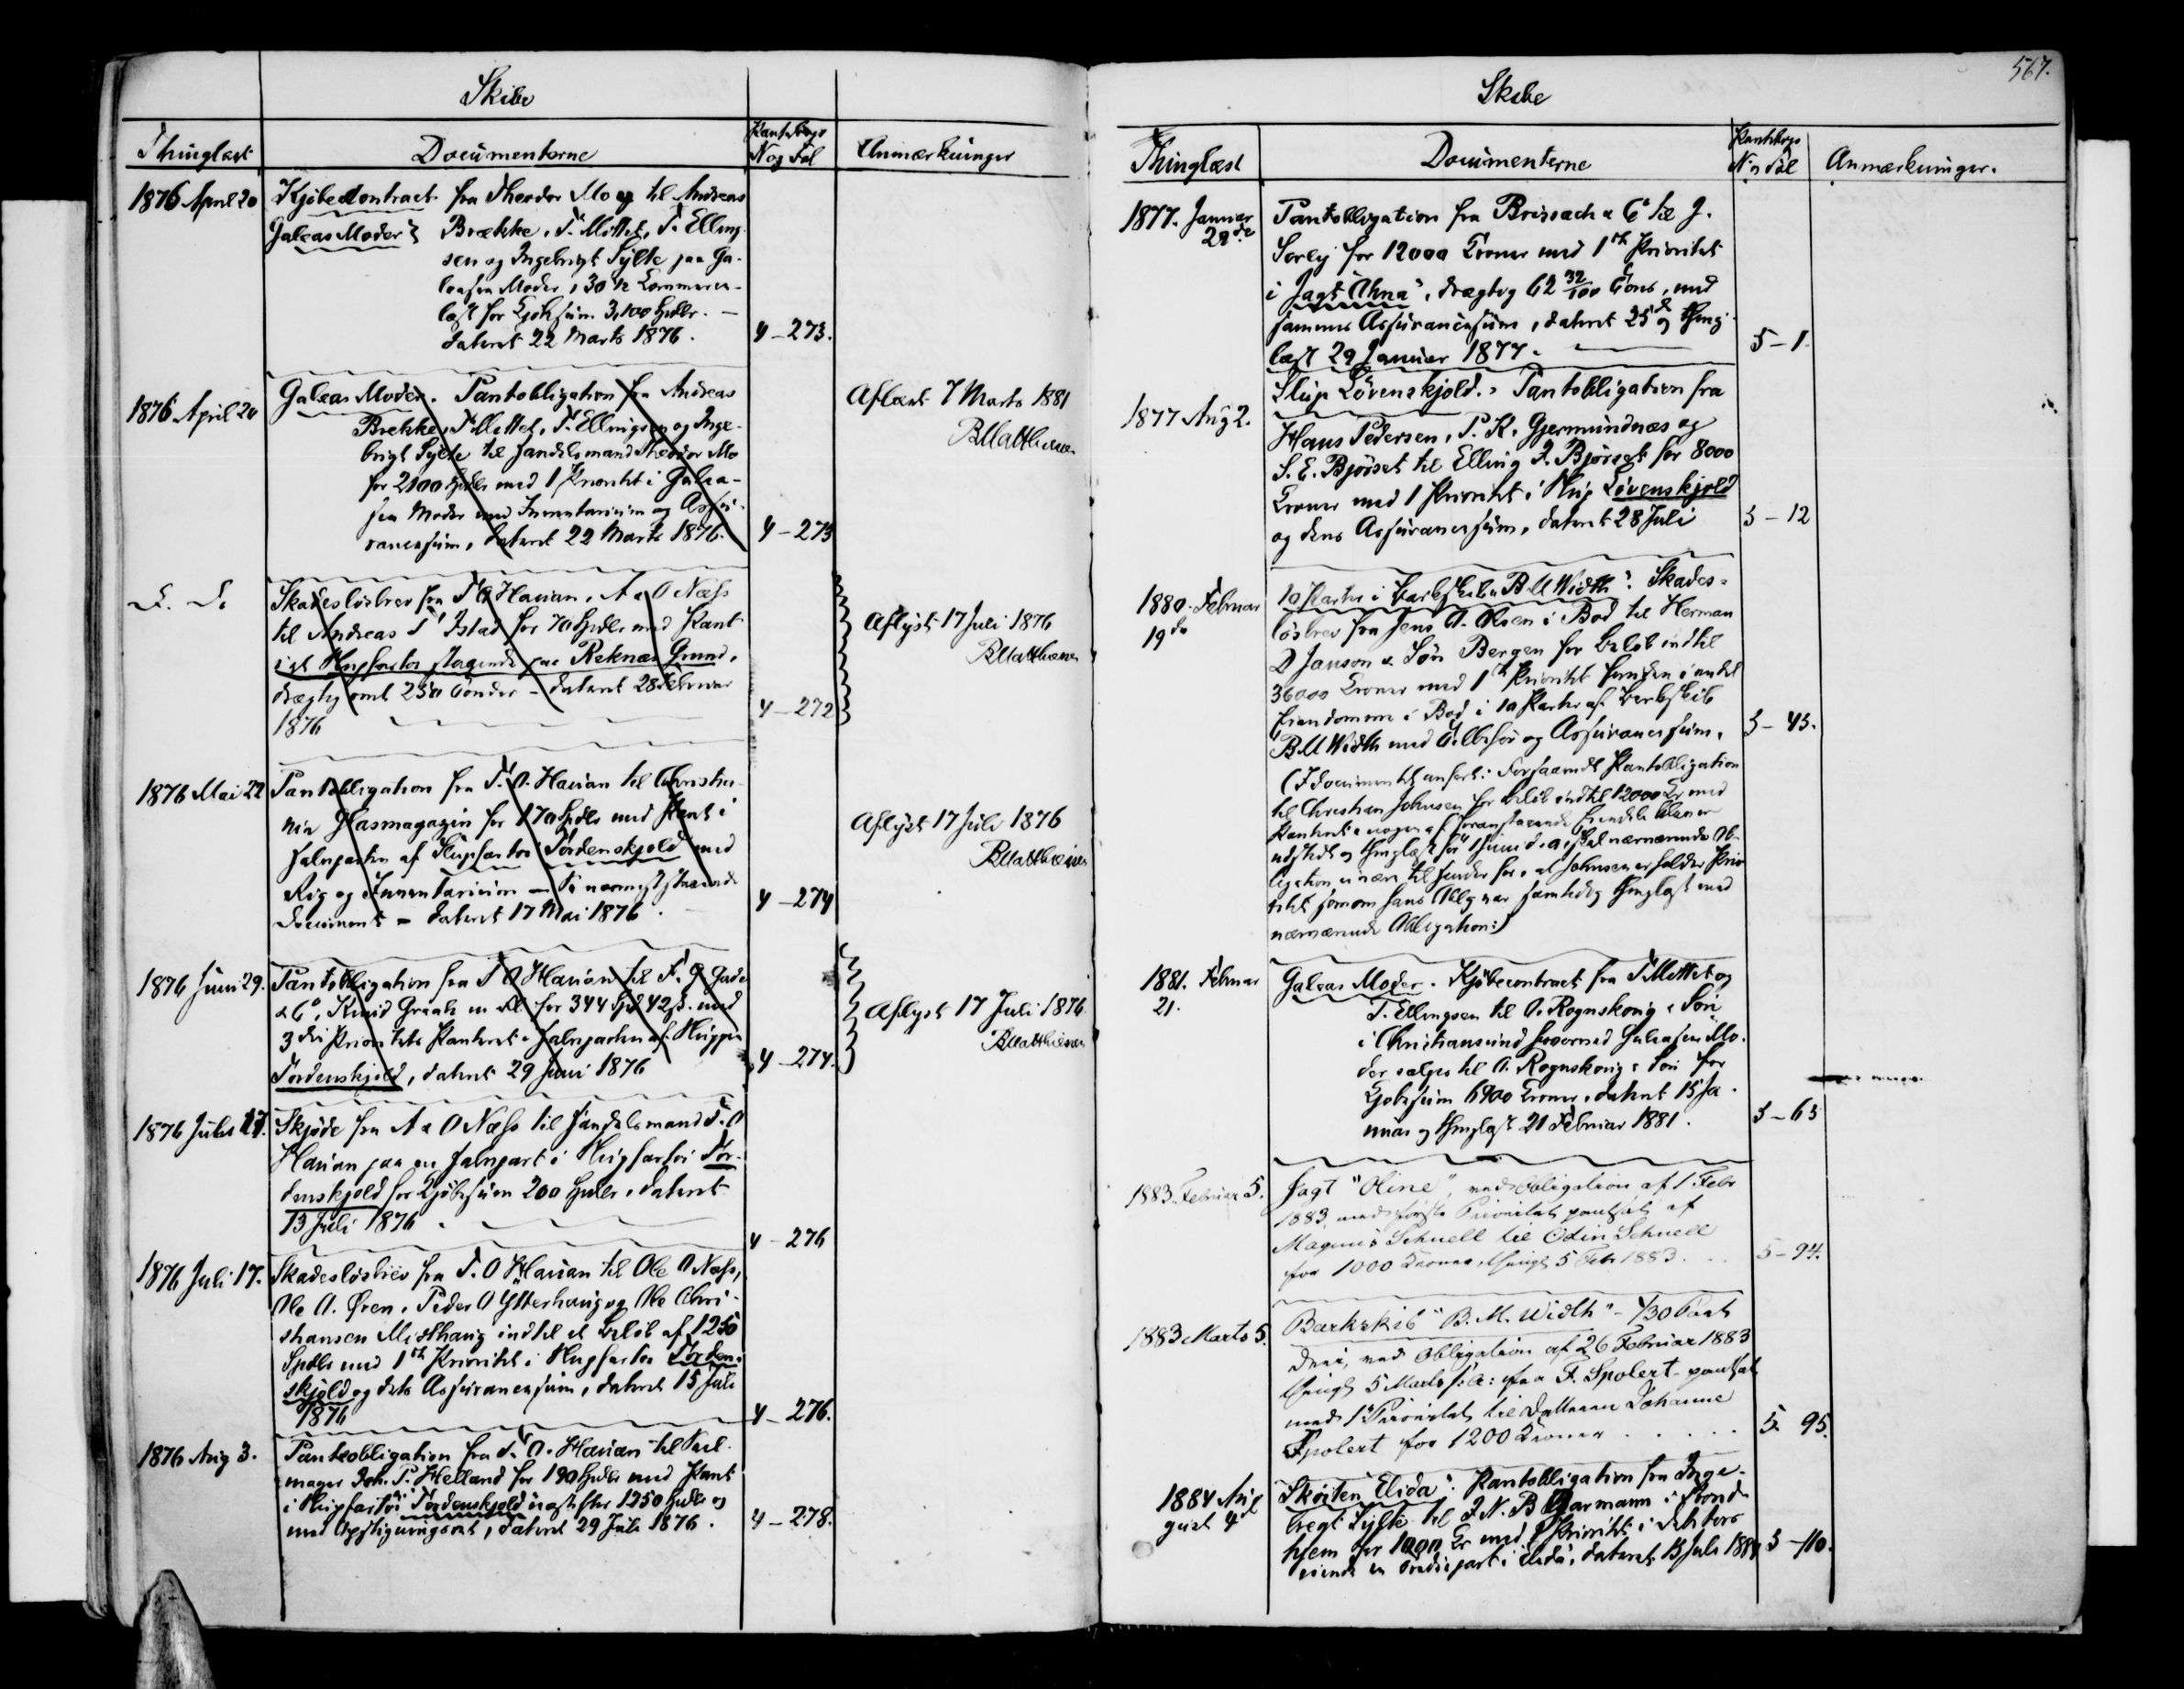 Skibe
Thinglæst
Documenterne
Pantebogs
N og Fol
Anmærkninger
1876 April 20
Kjøbecontract fra Theodor Mo til Andreas
Galeas Moder
Brekke, T. Mittet, T. Elling-
sen og Ingebrigt Sylte paa Ga-
leasen Moder, 30 ½ Commerce-
læst for Kjøbesum 3,100 Spdlr. –
dateret 22 Marts 1876.
4 – 273.
1876 April 20
Galeas Moder. Pantobligation fra Andreas
Brekke, T. Mittet, T. Ellingsen og Inge-
brigt Sylte til Handelsmand Theodor Mo
for 2100 Spdlr med 1 Prioritet i Galea-
sen Moder med Inventarium og Assu-
rancesum, dateret 22 Marts 1876.
4 – 273
Aflæst 7 Marts 1881
BMatthiesen
D. Do
Skadesløsbrev fra T O Harian, A O Næss
til Andreas T Istad for 70 Spdlr med Pant
i et Slupfartøi staaende paa Reknæs Grund,
drægtig omt 250 Tønder – dateret 28 Februar
1876
4 – 272
Aflyst 17 Juli 1876
BMatthiesen
1876 Mai 22
Pantobligation fra T. O. Harian til Christia-
nia Glasmagazin for 170 Spdlr med Pant i
Halvparten af Slupfartøi Tordenskjold med
Rig og Inventarium – Se nærmest staaende
Document – dateret 17 Mai 1876.
4 – 274
Aflyst 17 Juli 1876
BMatthiesen
1876 Juni 29.
Pantobligation fra T O Harian til F. G Gade
& Co, Knud Graah m fl for 344 Spd 42 s. med
3die Prioritets Panteret i Halvparten af Sluppen
Tordenskjold, dateret 29 Juni 1876
4 – 274.
Aflyst 17 Juli 1876
BMatthiesen
1876 Juli 17.
Skjøde fra A O Næss til Handelsmand T. O
Harian paa en Halvpart i Slupfartøi Tor-
denskjold for Kjøbesum 200 Spdlr, dateret
13 Juli 1876.
4 – 276
1876 Juli 17.
Skadesløsbrev fra T. O Harian til Ole O Næss,
Ole A. Øren, Peder O Ytterhaug og Ole Chri-
stiansen Misthaug indtil et Beløb af 1250
Spdlr med 1ste Prioritet i Slupfartøi Torden-
skjold og dets Assurancesum, dateret 15 Juli
1876
4 – 276.
1876 Aug 3.
Pantobligation fra T. O. Harian til Seil-
mager Joh. P. Helland for 190 Spdlr med Pant
i Slupfartøi Tordenskjold næst efter 1250 Spdlr og
med Opstigningsret, dateret 29 Juli 1876.
4 – 278.
567.
Skibe
Thinglæst
Documenterne
Pantebogs
N og Fol
Anmærkninger.
1877. Januar
29de
Pantobligation fra Brissach & Co til J.
Sorly for 12000 Kroner med 1ste Prioritet
i Jagt "Ahna", drægtig 62 32/100 Tons, med
sammes Assurancesum, dateret 25de og thing-
læst 29 Januar 1877.
5 – 1.
1877 Aug 2.
Slup Løvenskjold. Pantobligation fra
Hans Pedersen, P. K. Gjermundnæs og
S. E. Bjørset til Elling J. Bjørset for 8000
Kroner med 1 Prioritet i Slup Løvenskjold
og dens Assurancesum, dateret 28 Juli
5 – 12
1880. Februar
19de
10 Parter i Barkskib "B M Width". Skades-
løsbrev fra Jens O. Olsen i Bod til Herman
D Janson & Søn Bergen for Beløb indtil
36000 Kroner med 1ste Prioritet foruden i endel
Eiendomme i Bod i 10 Parter af Barkskib
B M Width med Tilbehør og Assurancesum,
(I Documentet anført: Forsaavidt Pantobligation
til Christian Johnsen for Beløb indtil 12000 Kr med
Panteret i nogen af foranstaaende Eiendele bliver
udstedt og thinglæst før 1 Juni d. a. skal nærværende Ob-
ligation ei være til Hinder for, at Johnsen erholder Prio-
ritet som om hans Oblig var samtidig thinglæst med
nærværende Obligation:)
5 – 45.
1881. Februar
21.
Galeas Moder. Kjøbecontract fra T Mittet og
T. Ellingsen til O. Rognskoug & Søn
i Christiansund hvorved Galeasen Mo-
der sælges til O. Rognskoug & Søn for
Kjøbesum 6900 Kroner, dateret 15 Ja-
nuar og thinglæst 21 Februar 1881.
5 – 65
1883. Februar 5.
Jagt "Oline", ved Obligation af 1 Febr
1883 med første Prioritet pantsat af
Magnus Schnell til Odin Schnell
for 1000 Kroner, thingl 5 Feb 1883.
5 – 94.
1883 Marts 5.
Barkskib "B. M. Width" – 1/30 Part
deri, ved Obligation af 26 Februar 1883
thingl 5 Marts s. A: fra F. Spolert pantsat
med 1 Prioritet til Datteren Johanne
Spolert for 1200 Kroner . . . . .
5 – 95.
1884 Au-
gust 4de
Skøiten "Elida". Pantobligation fra Inge-
bregt Sylte til J. N. B Garmann i Trond-
hjem for 1000 Kr med 1 Prioritet i Debitors
eiende en Trediepart i Elida, dateret 15 Juli 1884
5 – 110.